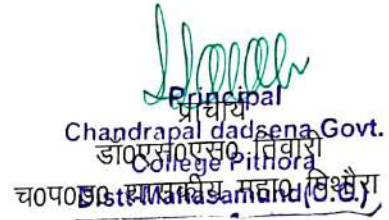 Principal
प्राचार्य
Chandrapal dadsena Govt.
डॉ०एस०एस० तिवारी
College Pithora
च०पा०ड० शासकीय महा० पिथौरा
Distt-Mahasamund(C.G.)